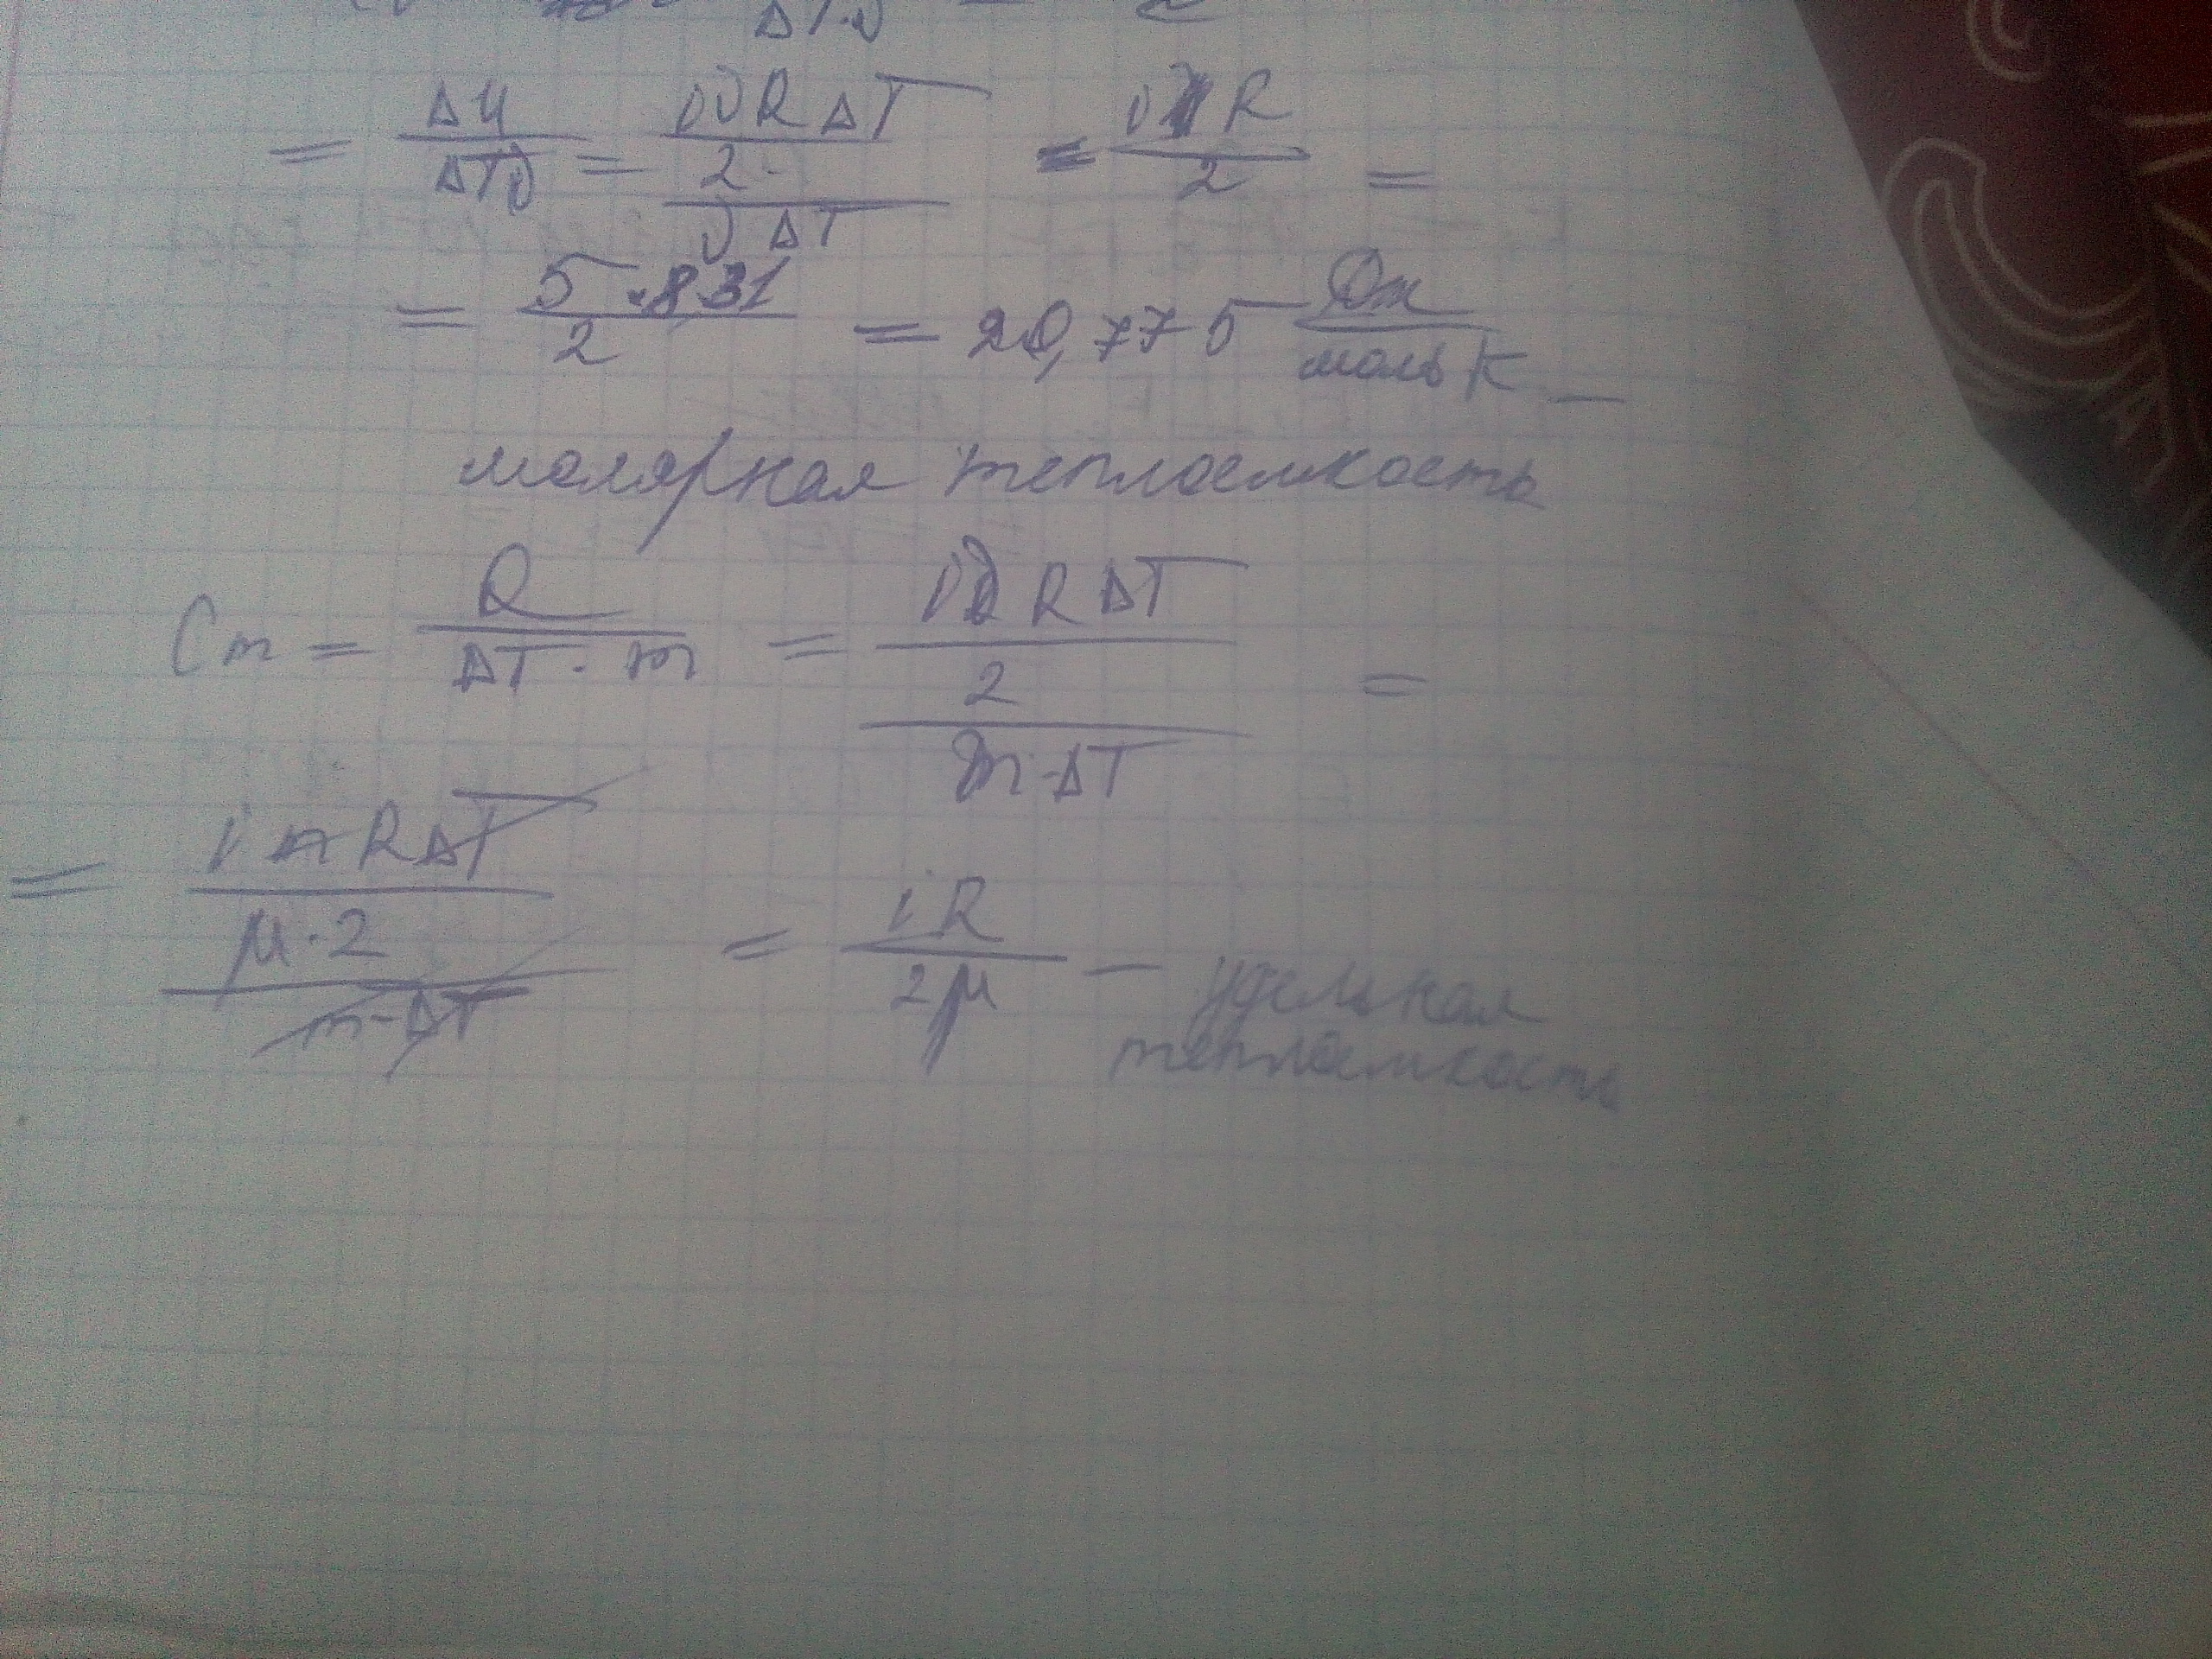 ΔT·ν
= ΔU / ΔTν = (iνRΔT / 2) / (νΔT) = iR / 2 =
= 5·8.31 / 2 = 20,775 Дж / моль К —
молярная теплоемкость
Cm = Q / ΔT·m = (iνRΔT / 2) / (m·ΔT) =
= (imRΔT / μ·2) / (m·ΔT) = iR / 2μ — удельная
теплоемкость